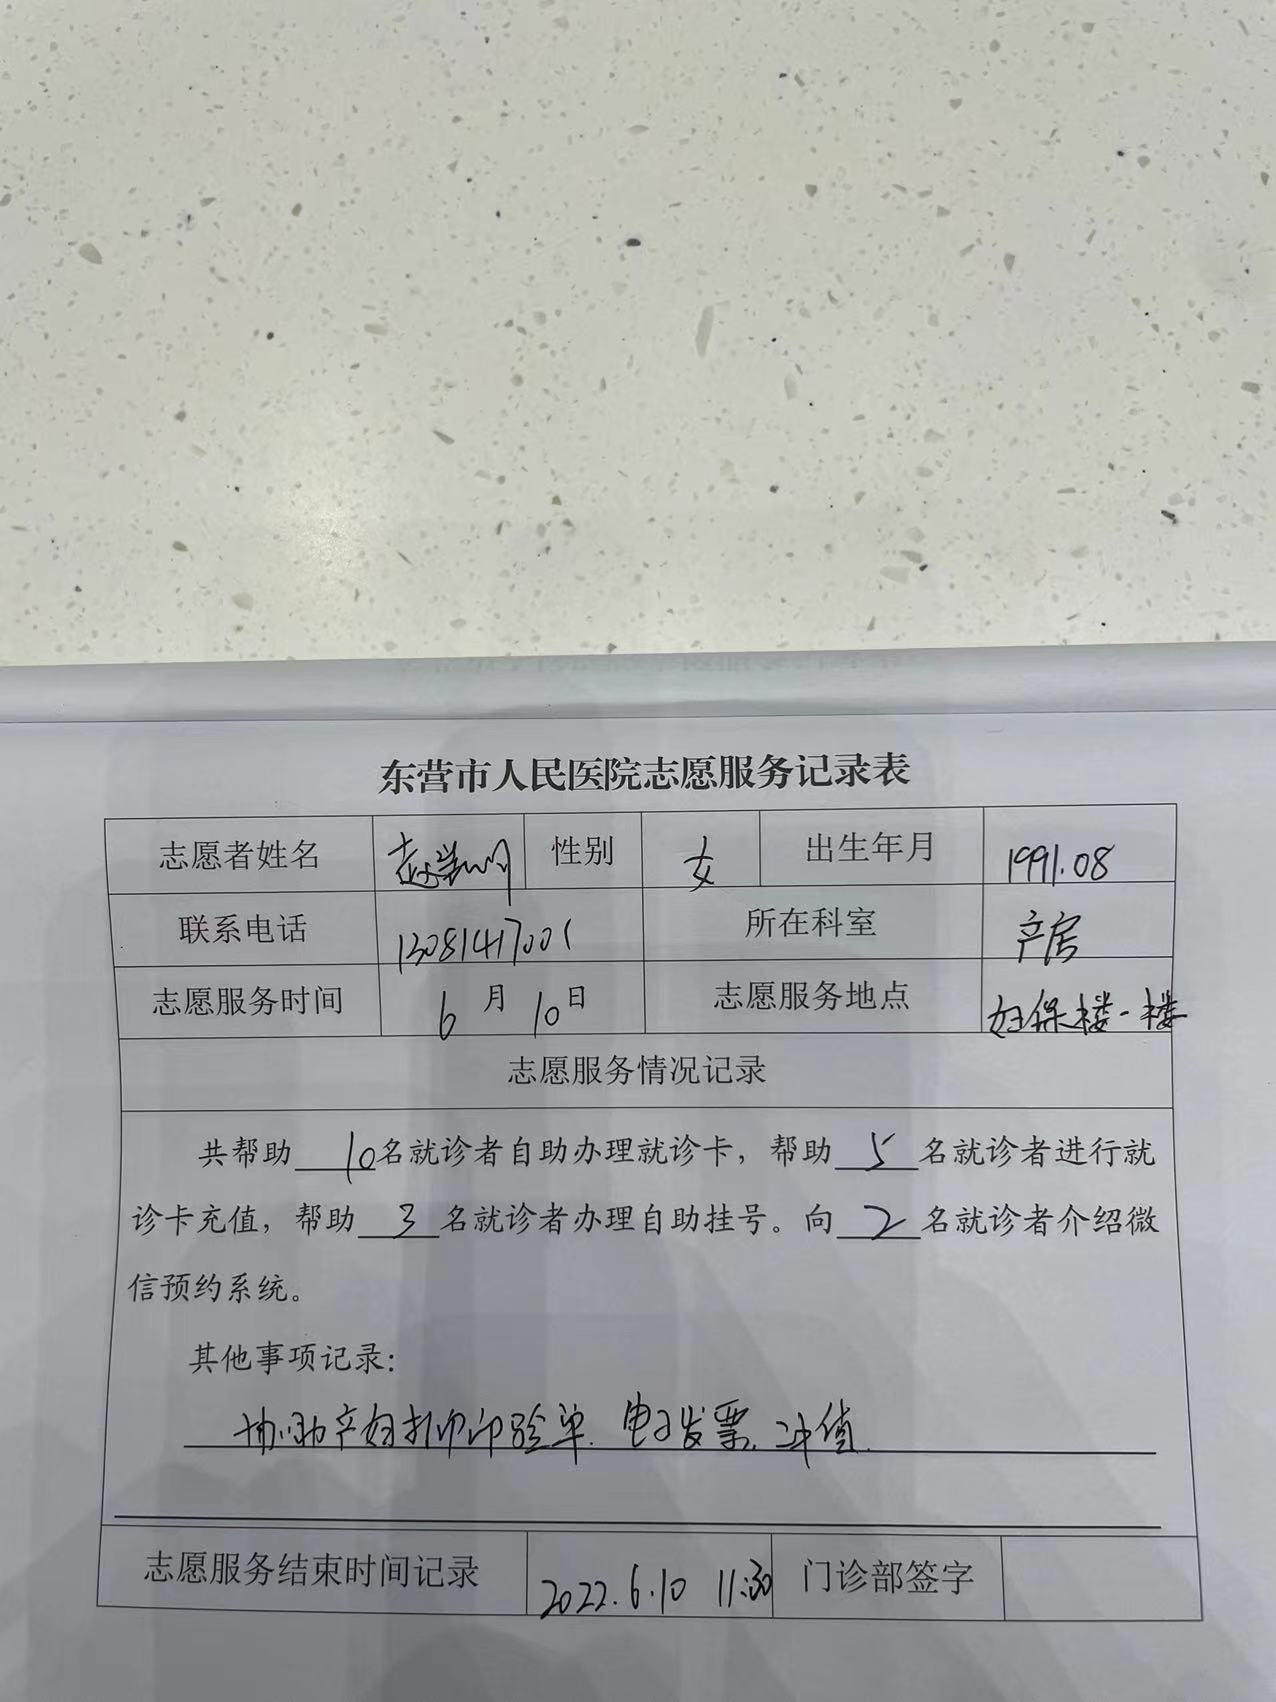 东营市人民医院志愿服务记录表
志愿者姓名 性别 女 出生年月 1991.08
联系电话 13081417001 所在科室 产房
志愿服务时间 6月10日 志愿服务地点 妇保楼一楼
志愿服务情况记录
共帮助10名就诊者自助办理就诊卡，帮助5名就诊者进行就
诊卡充值，帮助3名就诊者办理自助挂号。向2名就诊者介绍微
信预约系统。
其他事项记录：
协助产妇打印验单、电子发票、冲值.
志愿服务结束时间记录 2022.6.10 11:30 门诊部签字